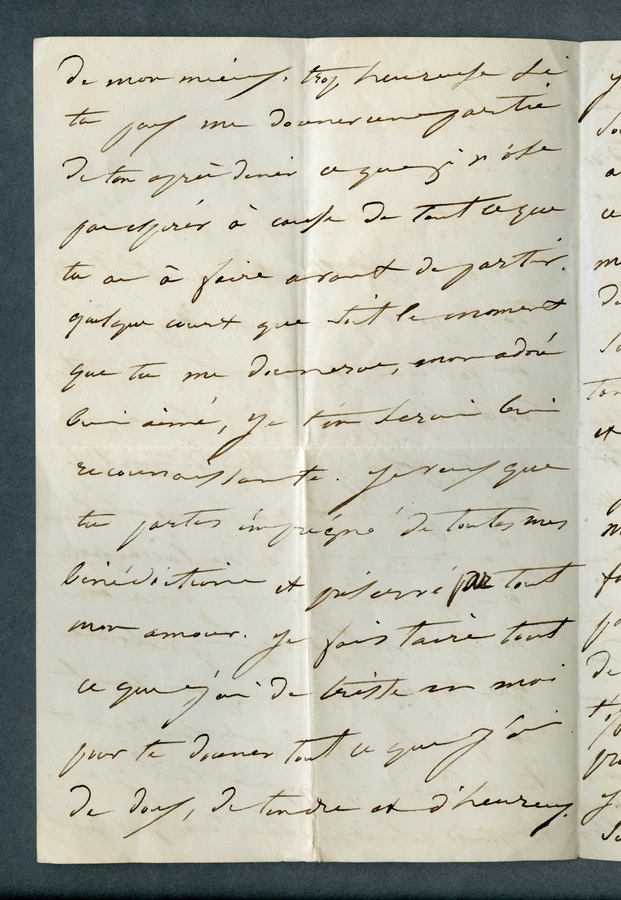 de mon mieux, trop heureuse si
tu peux me donner une partie
de ton après diner ce que je n'ose
pas espérer à cause de tout ce que
tu as à faire avant de partir.
quelque court que soit le moment
que tu me donneras, mon adoré
bien aimé, je t'en serai bien
reconnaissante. Je veux que
tu partes imprégné de toutes mes
bénédictions et préservé par tout
mon amour. Je fais taire tout
ce que j'ai de triste en moi
pour te donner tout ce que j'ai
de doux, de tendre et d'heureux.